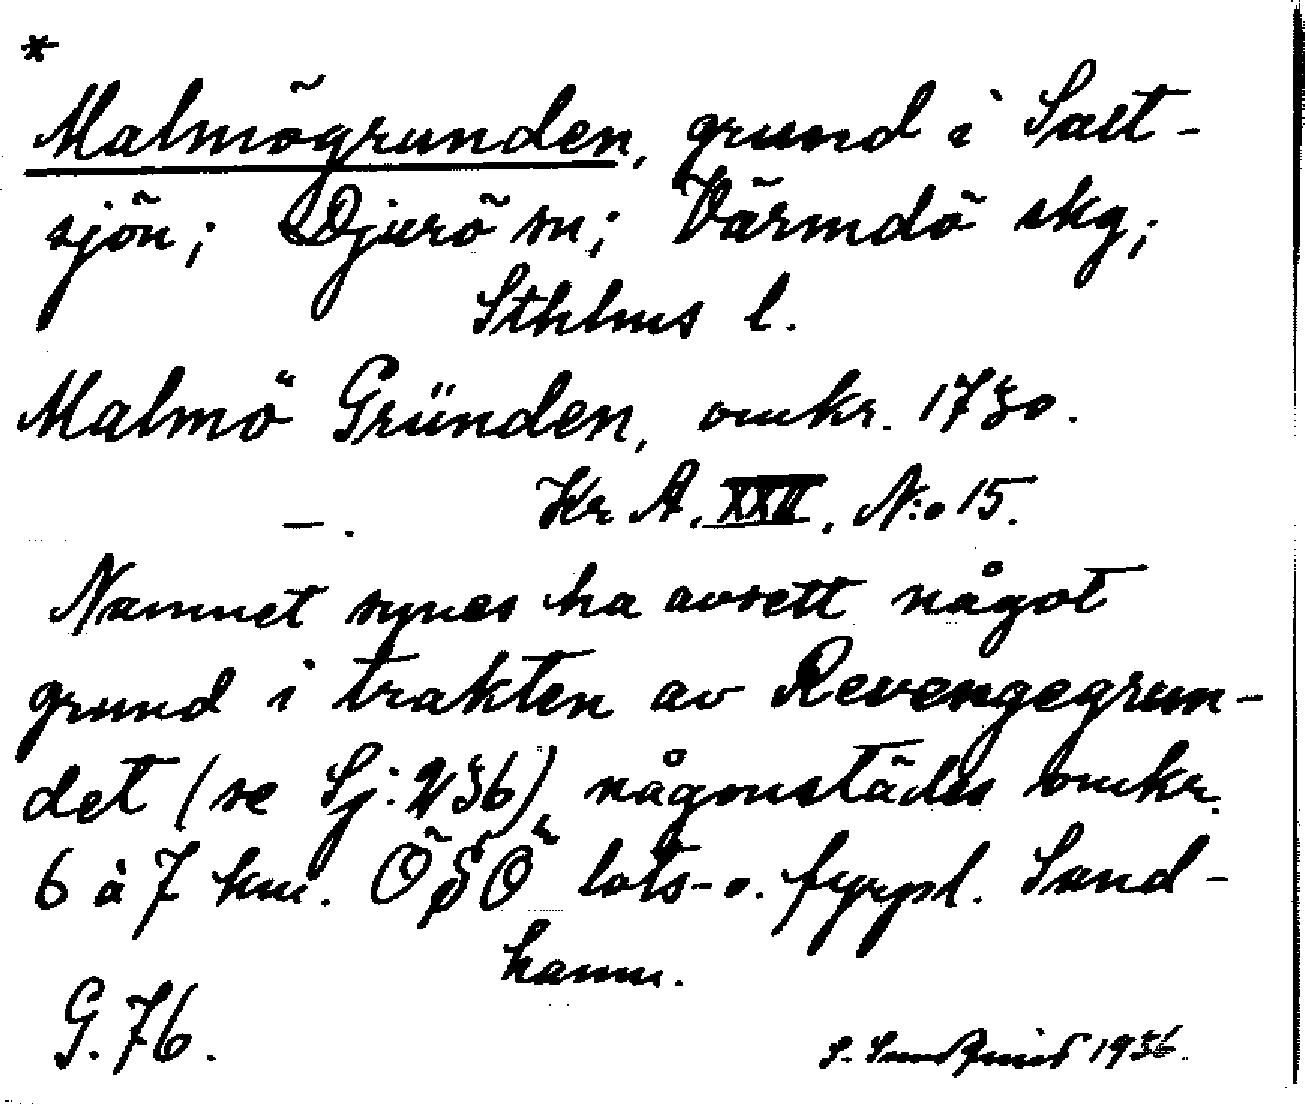 *
Malmögrunden, grund i Salt-
sjön; Djurö sn; Värmdö skg;
Sthlms l.
Malmö Gründen, omkr. 1730.
—. Kr A. XXII, N:o 15.
Namnet synes ha avsett något
grund i trakten av Revengegrun-
det (se Sj: 236), någonstädes omkr.
6 à 7 km. ÖSÖ lots- o. fyrpl. Sand-
hamn.
G. 76.
S. 1936.